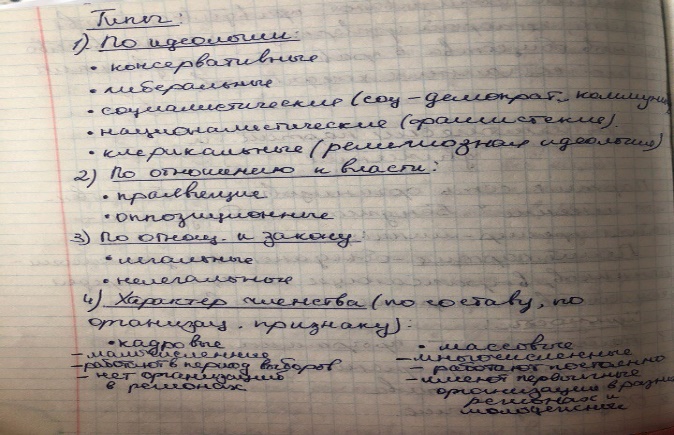 Типы:
1) По идеологии:
• консервативные
• либеральные
• социалистические (соц-демократ.
• националистические (фашистские).
• клерикальные (религиозная идеология)
2) По отношению к власти:
• правящие
• оппозиционные
3) По отнош. к закону:
• легальные
• нелегальные
4) Характер членства (по составу, по
организац. признаку):
• кадровые
– малочисленные
– работают в период выборов
– нет организаций
в регионах
• массовые
– многочисленные
– работают постоянно
– имеют первичные
организации в
регионах и
молодежные